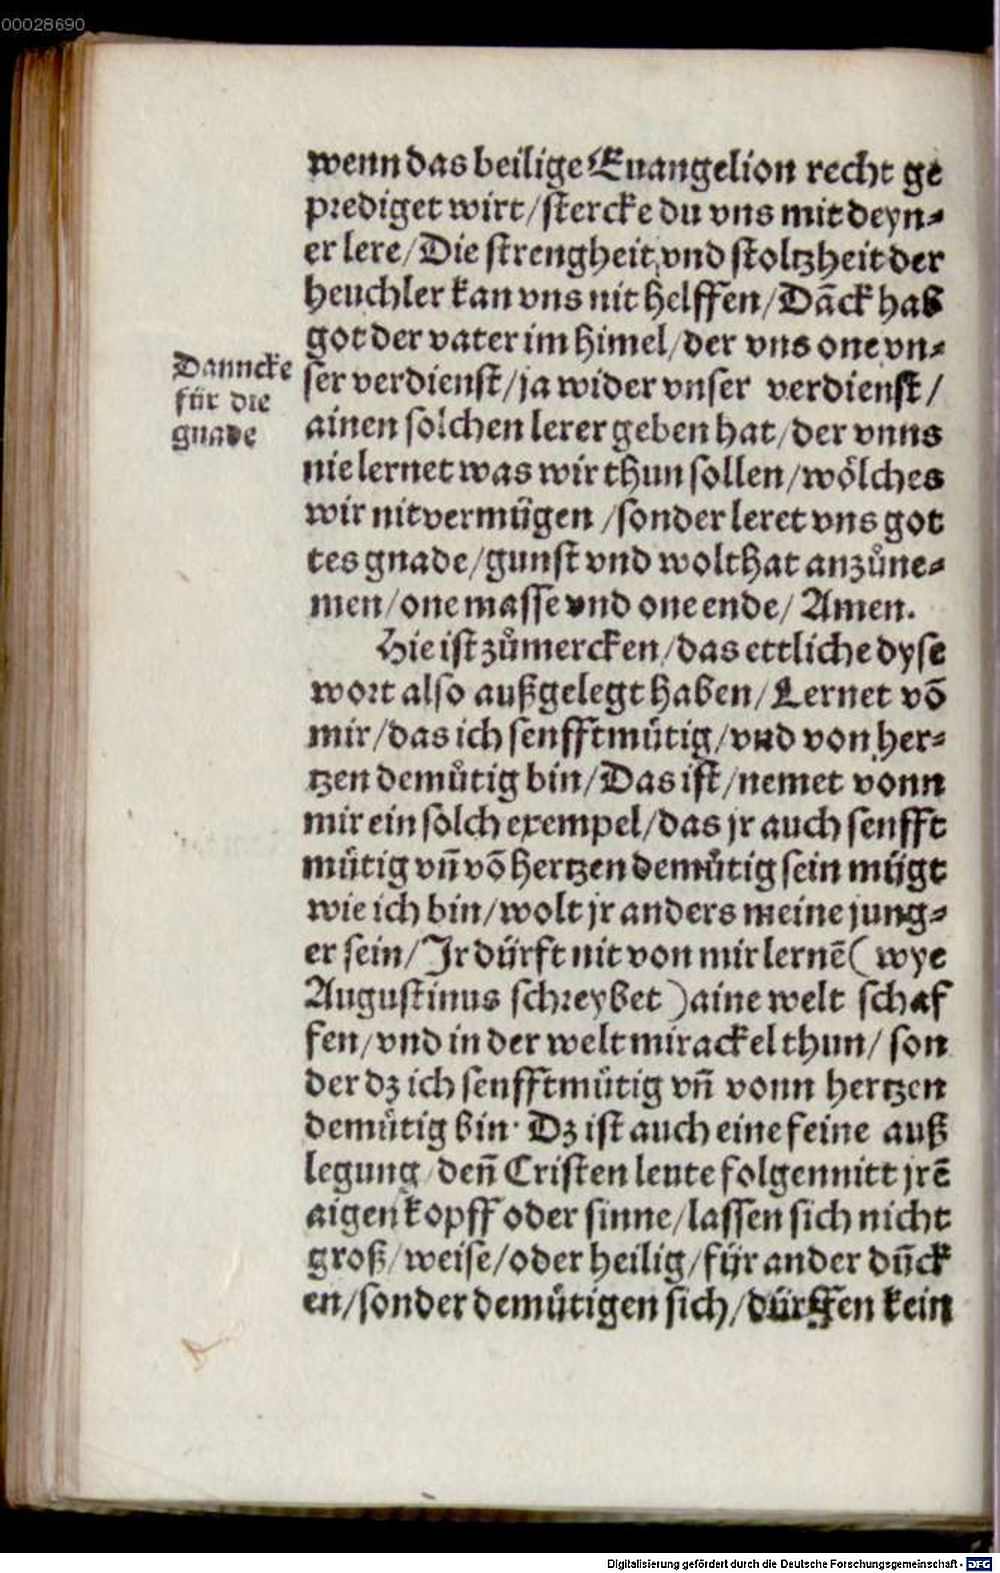 00028690
wenn das heilige Euangelion recht ge
prediget wirt/stercke du vns mit deyn-
er lere/Die strengheit vnd stoltzheit der
heuchler kan vns nit helffen/Dāck hab
got der vater im himel/der vns one vn-
ser verdienst/ja wider vnser verdienst/
ainen solchen lerer geben hat/der vnns
nie lernet was wir thun sollen/wölches
wir nit vermügen /sonder leret vns got
tes gnade/gunst vnd wolthat anzůne-
men/one masse vnd one ende/ Amen.
Danncke
für die
gnade
Hie ist zůmercken/das ettliche dyse
wort also außgelegt haben/Lernet vō
mir/das ich senfftmütig/vnd von her-
tzen demůtig bin/Das ist/nemet vonn
mir ein solch exempel/das jr auch senfft
mütig vn̄ vō hertzen demůtig sein mügt
wie ich bin/wolt jr anders meine jung-
er sein/Ir dürft nit von mir lernē( wye
Augustinus schreybet )aine welt schaf
fen/vnd in der welt mirackel thun/ son
der dz ich senfftmůtig vn̄ vonn hertzen
demütig bin· Dz ist auch eine feine auß
legung/den̄ Cristen leute folgen nitt jrē
aigen kopff oder sinne/lassen sich nicht
groß/weise/oder heilig/für ander dūck
en/sonder demütigen sich/dürffen kein
Digitalisierung gefördert durch die Deutsche Forschungsgemeinschaft - DFG